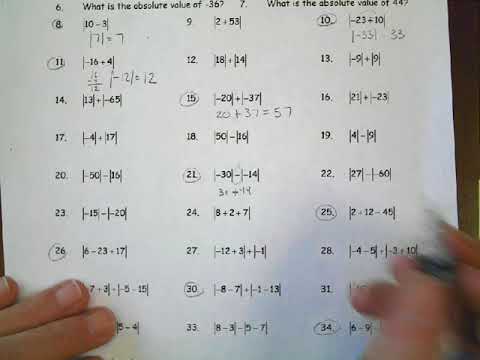 6. What is the absolute value of -36? 7. What is the absolute value of 44?
8. |10 – 3| 9. |2 + 53| 10. |-23 + 10|
|7| = 7 |-33| 33
11. |-16 + 4| 12. |18| + |14| 13. |-9| + |9|
|-12| = 12
14. |13| + |-65| 15. |-20| + |-37| 16. |21| + |-23|
20 + 37 = 57
17. |-4| + |17| 18. |50| – |16| 19. |4| – |9|
20. |-50| – |16| 21. |-30| – |-14| 22. |27| – |-60|
23. |-15| – |-20| 24. |8 + 2 + 7| 25. |2 + 12 – 45|
26. |6 – 23 + 17| 27. |-12 + 3| + |-1| 28. |-4 – 5| + |-3 + 10|
7 + 3| + |-5 – 15| 30. |-8 – 7| + |-1 – 13| 31.
|5 – 4| 33. |8 – 3| – |5 – 7| 34. |6 – 9| –